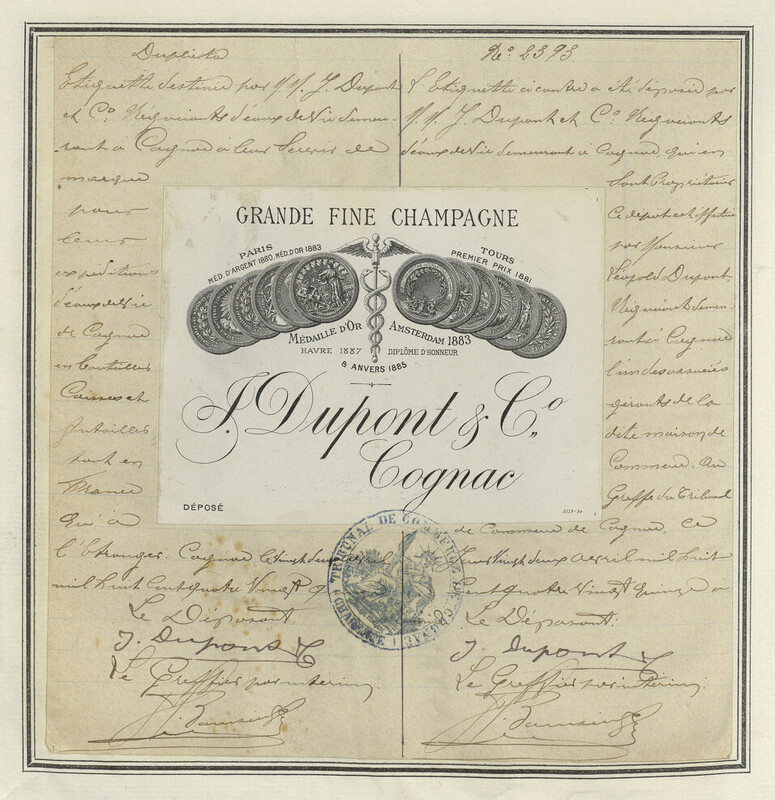 Duplicata
Etiquette destinée par M.M. J. Dupont
et Co. Négociants d'eaux de Vie demeu-
rant à Cognac à leur Servir de
marque
pour
leurs
expéditions
d'eaux de Vie
de Cognac
en bouteilles
Caisses et
futailles
tant en
France
qu'à
l'Etranger. Cognac le vingt deux avril
mil huit Cent quatre Vingt
Le Déposant.
J. Dupont
Le Greffier par interim
No. 2393
L'Etiquette ci contre a été déposée par
M.M. J. Dupont et Co. Négociants
d'eaux de Vie demeurant à Cognac, qui en
sont Propriétaires
Ce dépôt est effectué
par Monsieur
Léopold Dupont,
Négociant demeu-
rant à Cognac
l'un des associés
gérants de la
dite maison de
Commerce. Au
Greffe du Tribunal
de Commerce de Cognac, ce
Jour vingt deux avril mil huit
Cent quatre Vingt quinze
Le Déposant.
J. Dupont
Le Greffier par interim.
GRANDE FINE CHAMPAGNE
PARIS
MÉD. D'ARGENT 1880, MÉD. D'OR 1883
TOURS
PREMIER PRIX 1881
MÉDAILLE D'OR AMSTERDAM 1883
HAVRE 1887 DIPLÔME D'HONNEUR
& ANVERS 1885
J. Dupont & Co
Cognac
DÉPOSÉ
TRIBUNAL DE COMMERCE DE COGNAC